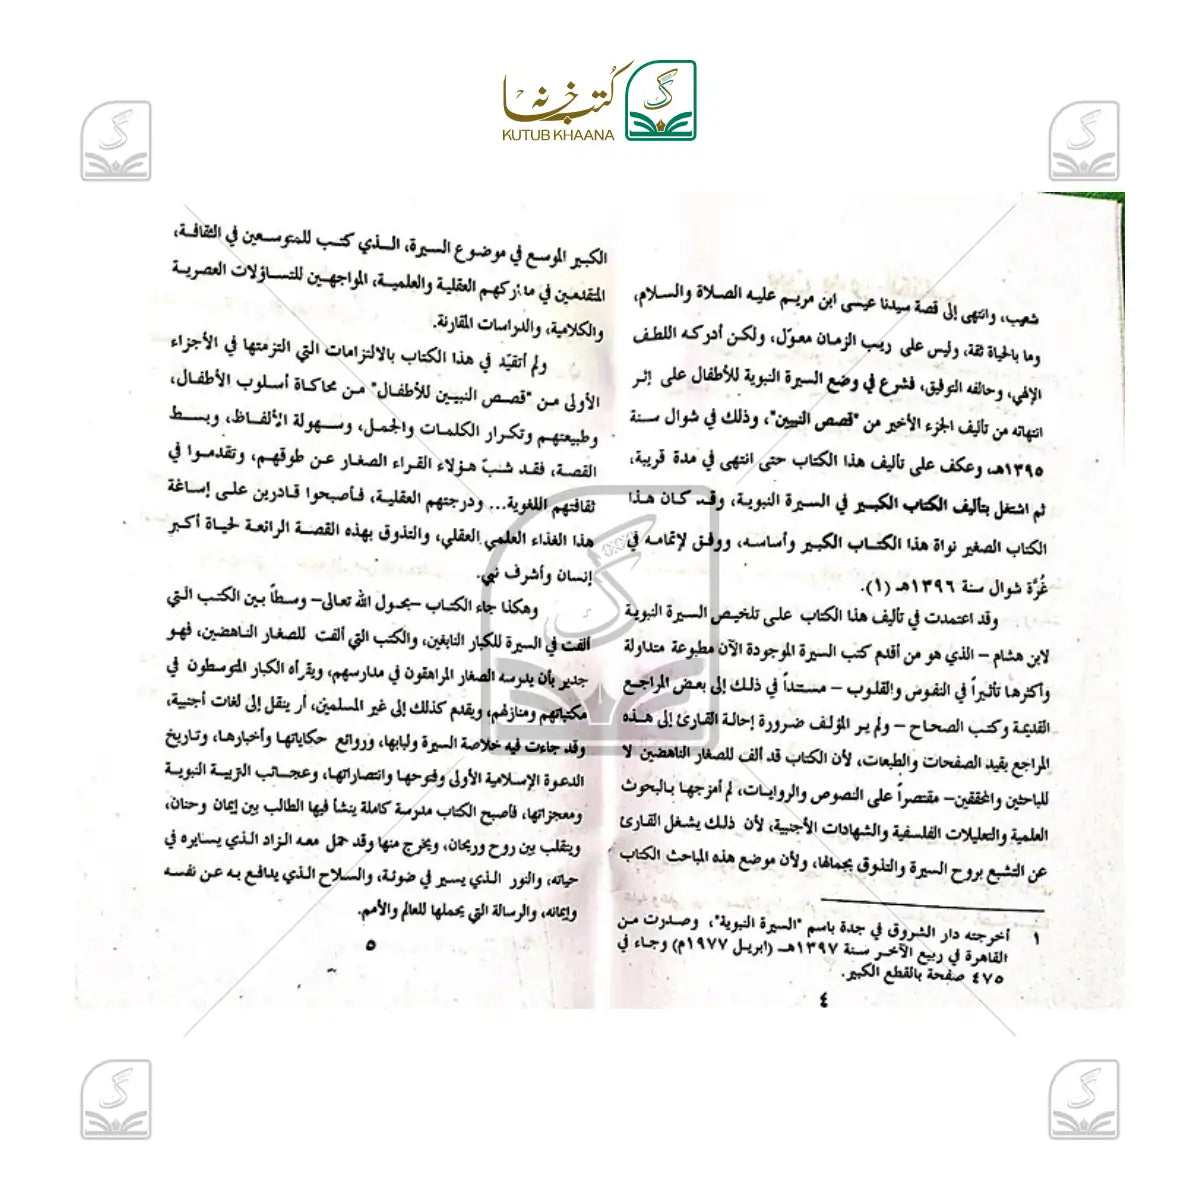 كتب خانہ
KUTUB KHAANA
شعيب، وانتهى إلى قصة سيدنا عيسى ابن مريم عليه الصلاة والسلام،
وما بالحياة ثقة، وليس على ريب الزمان معوّل، ولكن أدركه اللطف
الإلهي، وحالفه التوفيق، فشرع في وضع السيرة النبوية للأطفال على إثر
انتهائه من تأليف الجزء الأخير من "قصص النبيين"، وذلك في شوال سنة
١٣٩٥هـ، وعكف على تأليف هذا الكتاب حتى انتهى في مدة قريبة،
ثم اشتغل بتأليف الكتاب الكبير في السيرة النبوية، وقد كان هذا
الكتاب الصغير نواة هذا الكتاب الكبير وأساسه، ووفق لإتمامه في
غُرَّة شوال سنة ١٣٩٦هـ (١).
وقد اعتمدت في تأليف هذا الكتاب على تلخيص السيرة النبوية
لابن هشام – الذي هو من أقدم كتب السيرة الموجودة الآن مطبوعة متداولة
وأكثرها تأثيراً في النفوس والقلوب – مستنداً في ذلك إلى بعض المراجع
القديمة وكتب الصحاح – ولم ير المؤلف ضرورة إحالة القارئ إلى هذه
المراجع بقيد الصفحات والطبعات، لأن الكتاب قد ألف للصغار الناهضين لا
للباحثين والمحققين– مقتصراً على النصوص والروايات، لم أمزجها بالبحوث
العلمية والتعليلات الفلسفية والشهادات الأجنبية، لأن ذلك يشغل القارئ
عن التشبع بروح السيرة والتذوق بجمالها، ولأن موضع هذه المباحث الكتاب
١ أخرجته دار الشروق في جدة باسم "السيرة النبوية"، وصدرت من
القاهرة في ربيع الآخر سنة ١٣٩٧هـ (ابريل ١٩٧٧م) وجاء في
٤٧٥ صفحة بالقطع الكبير.
٤
الكبير الموسع في موضوع السيرة، الذي كتب للمتوسعين في الثقافة،
المتقدمين في مداركهم العقلية والعلمية، المواجهين للتساؤلات العصرية
والكلامية، والدراسات المقارنة.
ولم أتقيّد في هذا الكتاب بالالتزامات التي التزمتها في الأجزاء
الأولى من "قصص النبيين للأطفال" من محاكاة أسلوب الأطفال،
وطبيعتهم وتكرار الكلمات والجمل، وسهولة الألفاظ، وبسط
القصة، فقد شبّ هؤلاء القراء الصغار عن طوقهم، وتقدموا في
ثقافتهم اللغوية... ودرجتهم العقلية، فأصبحوا قادرين على إساغة
هذا الغذاء العلمي العقلي، والتذوق بهذه القصة الرائعة لحياة أكبر
إنسان وأشرف نبي.
وهكذا جاء الكتاب –بحول الله تعالى– وسطاً بين الكتب التي
ألفت في السيرة للكبار النابغين، والكتب التي ألفت للصغار الناهضين، فهو
جدير بأن يدرسه الصغار المراهقون في مدارسهم، ويقرأه الكبار المتوسطون في
مكتباتهم ومنازلهم، ويقدم كذلك إلى غير المسلمين، أر ينقل إلى لغات أجنبية،
وقد جاءت فيه خلاصة السيرة ولبابها، وروائع حكاياتها وأخبارها، وتاريخ
الدعوة الإسلامية الأولى وفتوحها وانتصاراتها، وعجائب التربية النبوية
ومعجزاتها، فأصبح الكتاب مدرسة كاملة ينشأ فيها الطالب بين إيمان وحنان،
ويتقلب بين روح وريحان، ويخرج منها وقد حمل معه الزاد الذي يسايره في
حياته، والنور الذي يسير في ضوئه، والسلاح الذي يدافع به عن نفسه
وإيمانه، والرسالة التي يحملها للعالم والأمم.
٥